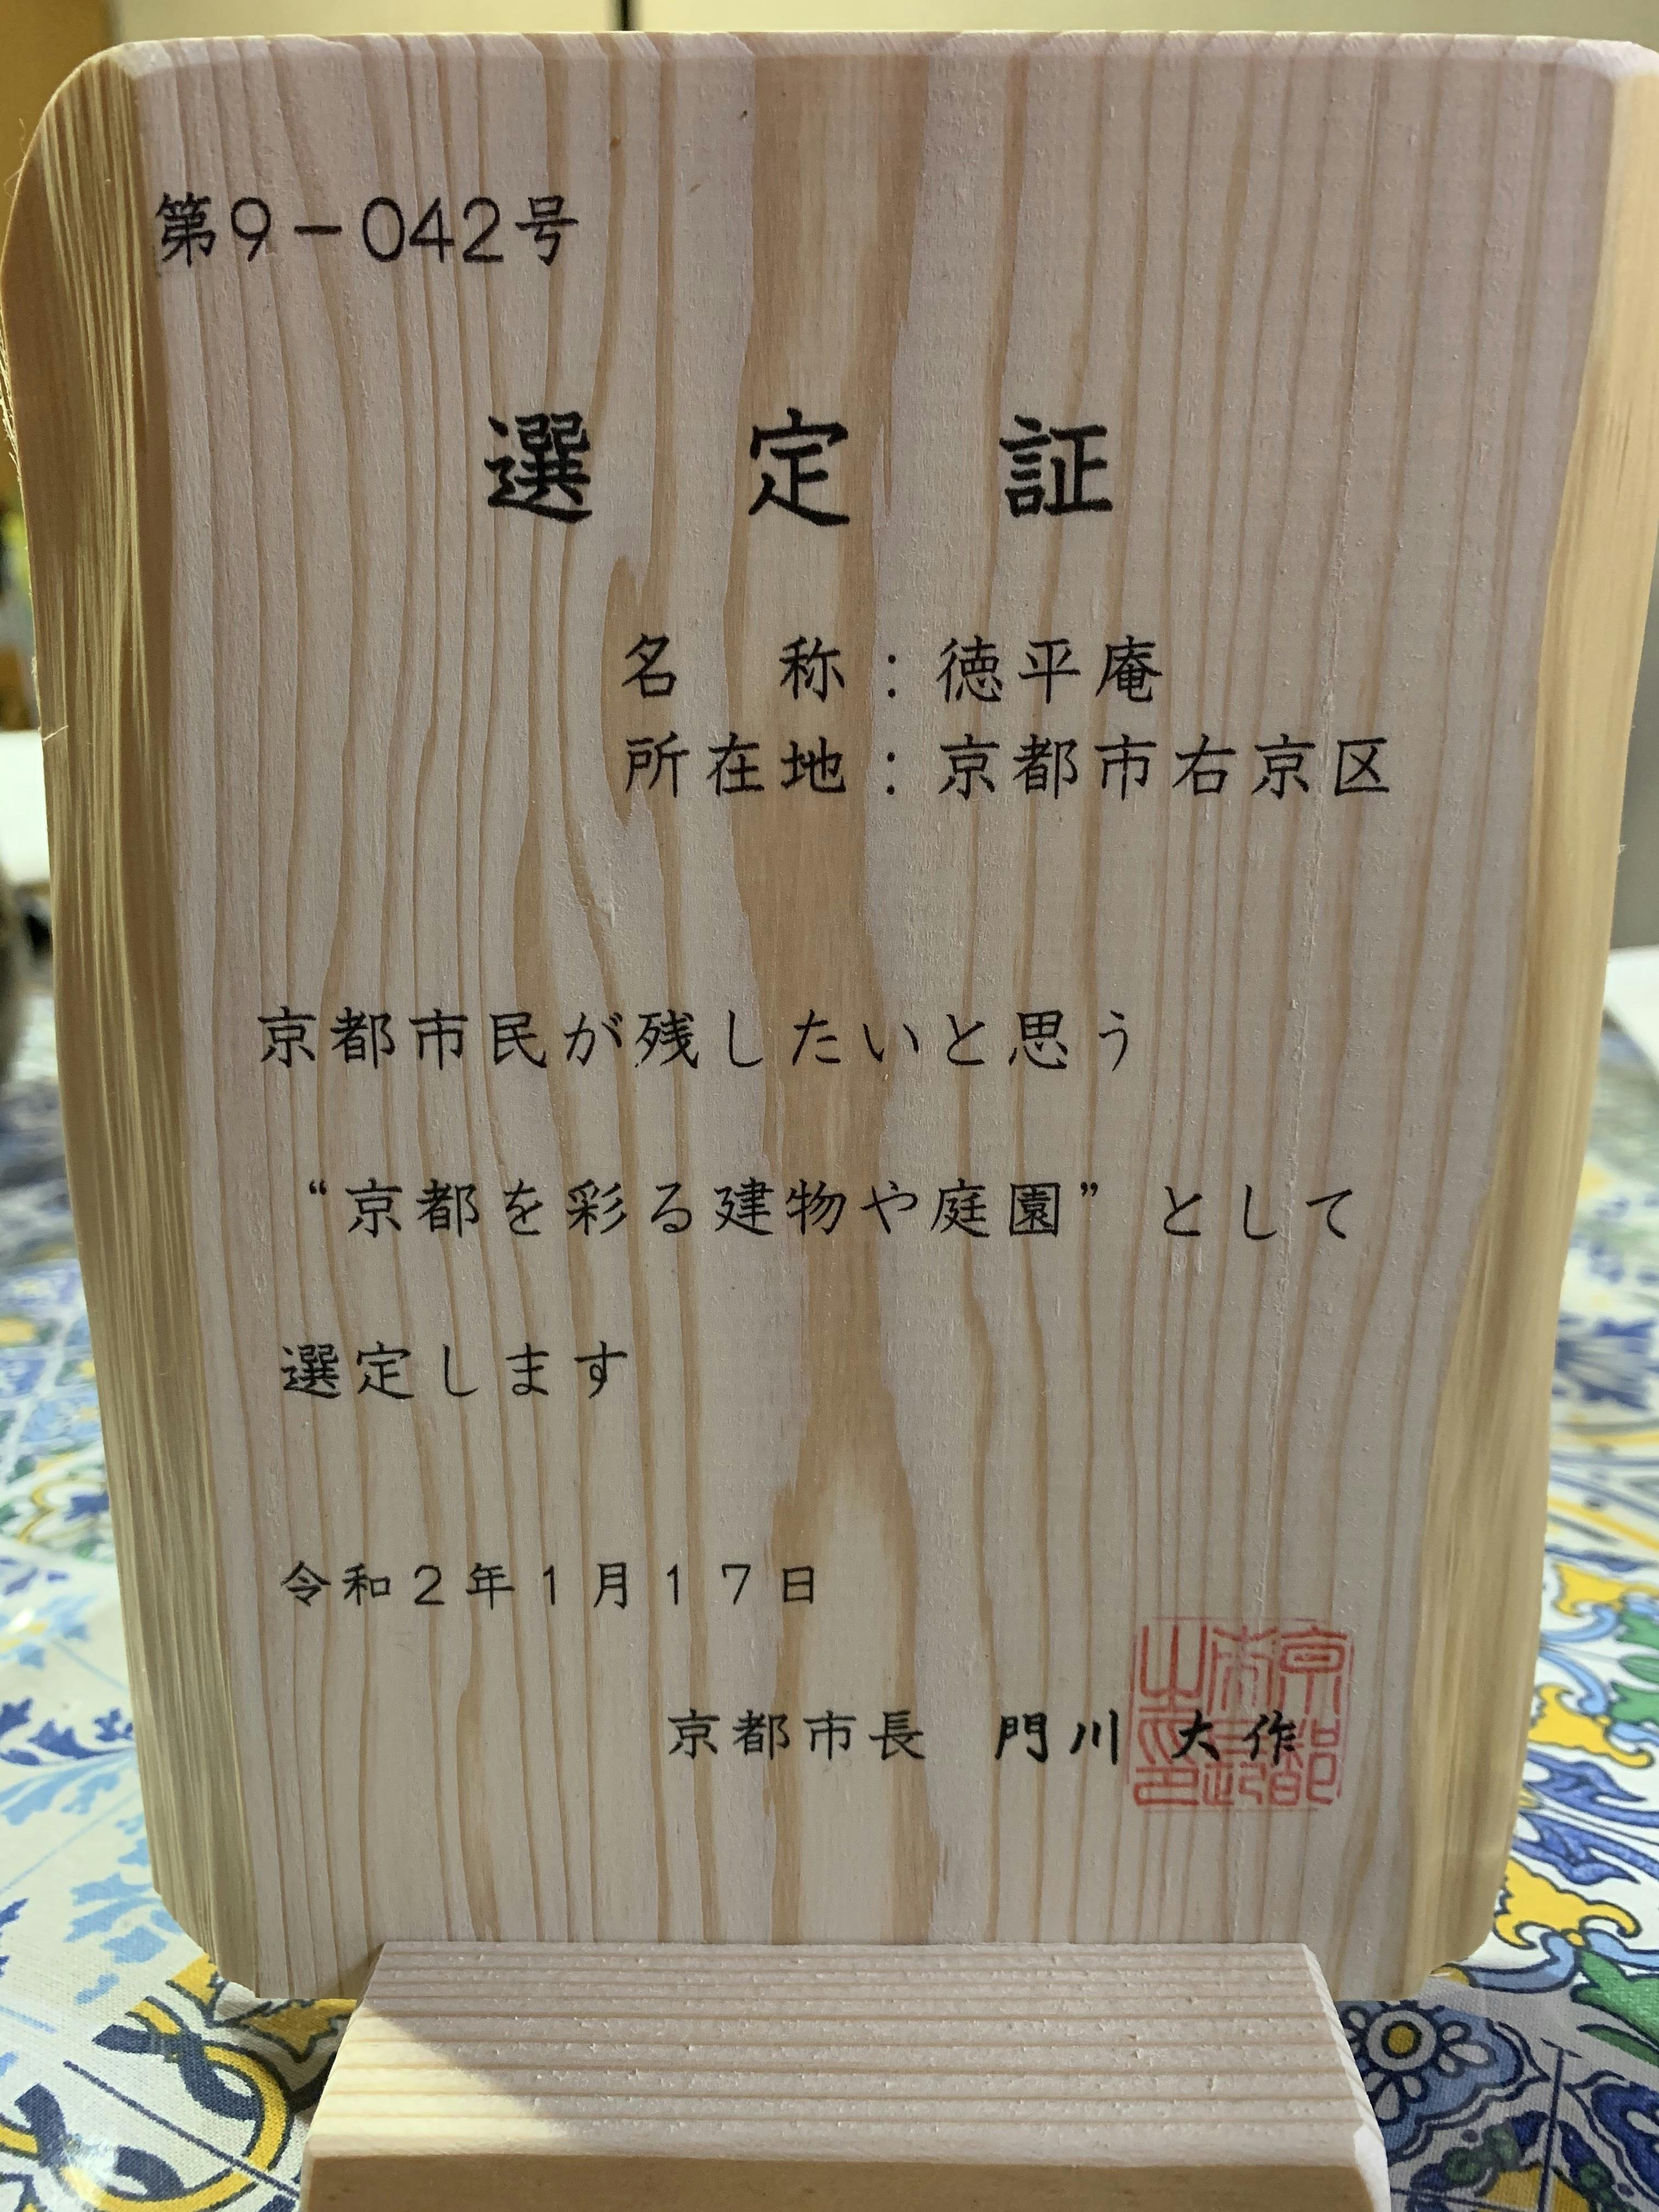 第9-042号
選定証
名　称：徳平庵
所在地：京都市右京区
京都市民が残したいと思う
“京都を彩る建物や庭園”として
選定します
令和2年1月17日
京都市長　門川 大作
京都市長之印